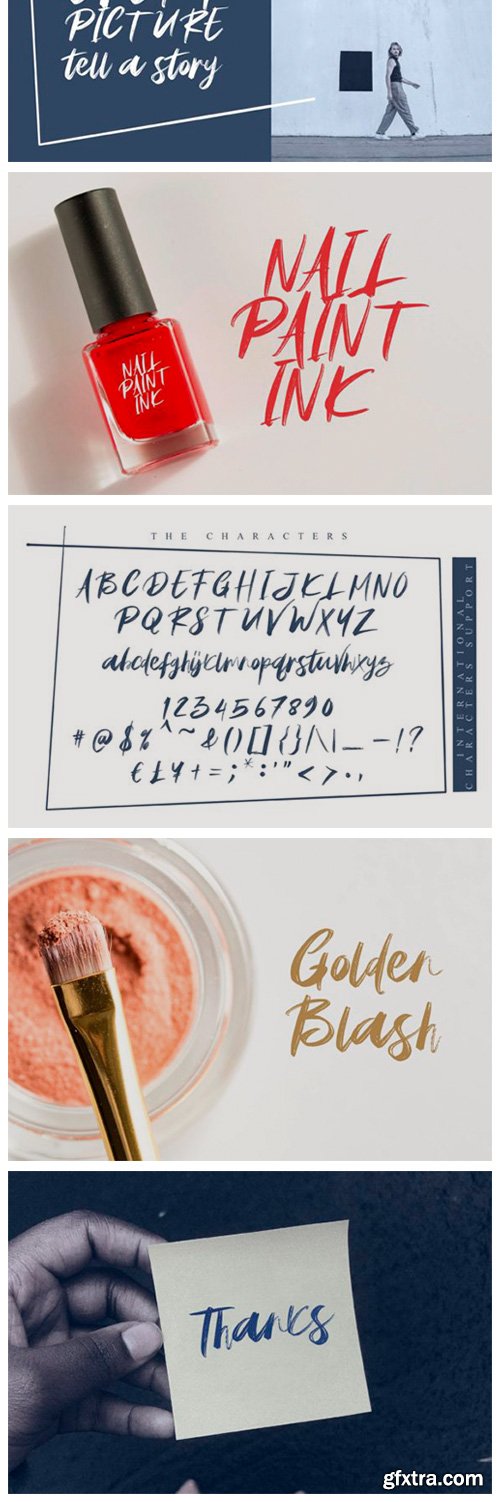 PICTURE
tell a story
NAIL
PAINT
INK
NAIL
PAINT
INK
THE CHARACTERS
ABCDEFGHIJKLMNO
PQRSTUVWXYZ
abcdefghijklmnopqrstuvwxyz
1234567890
#@$%^~&()[]{}/\|_–-!?
€£¥+=;*:'"<>.,
INTERNATIONAL
CHARACTERS SUPPORT
Golden
Blash
Thanks
gfxtra.com